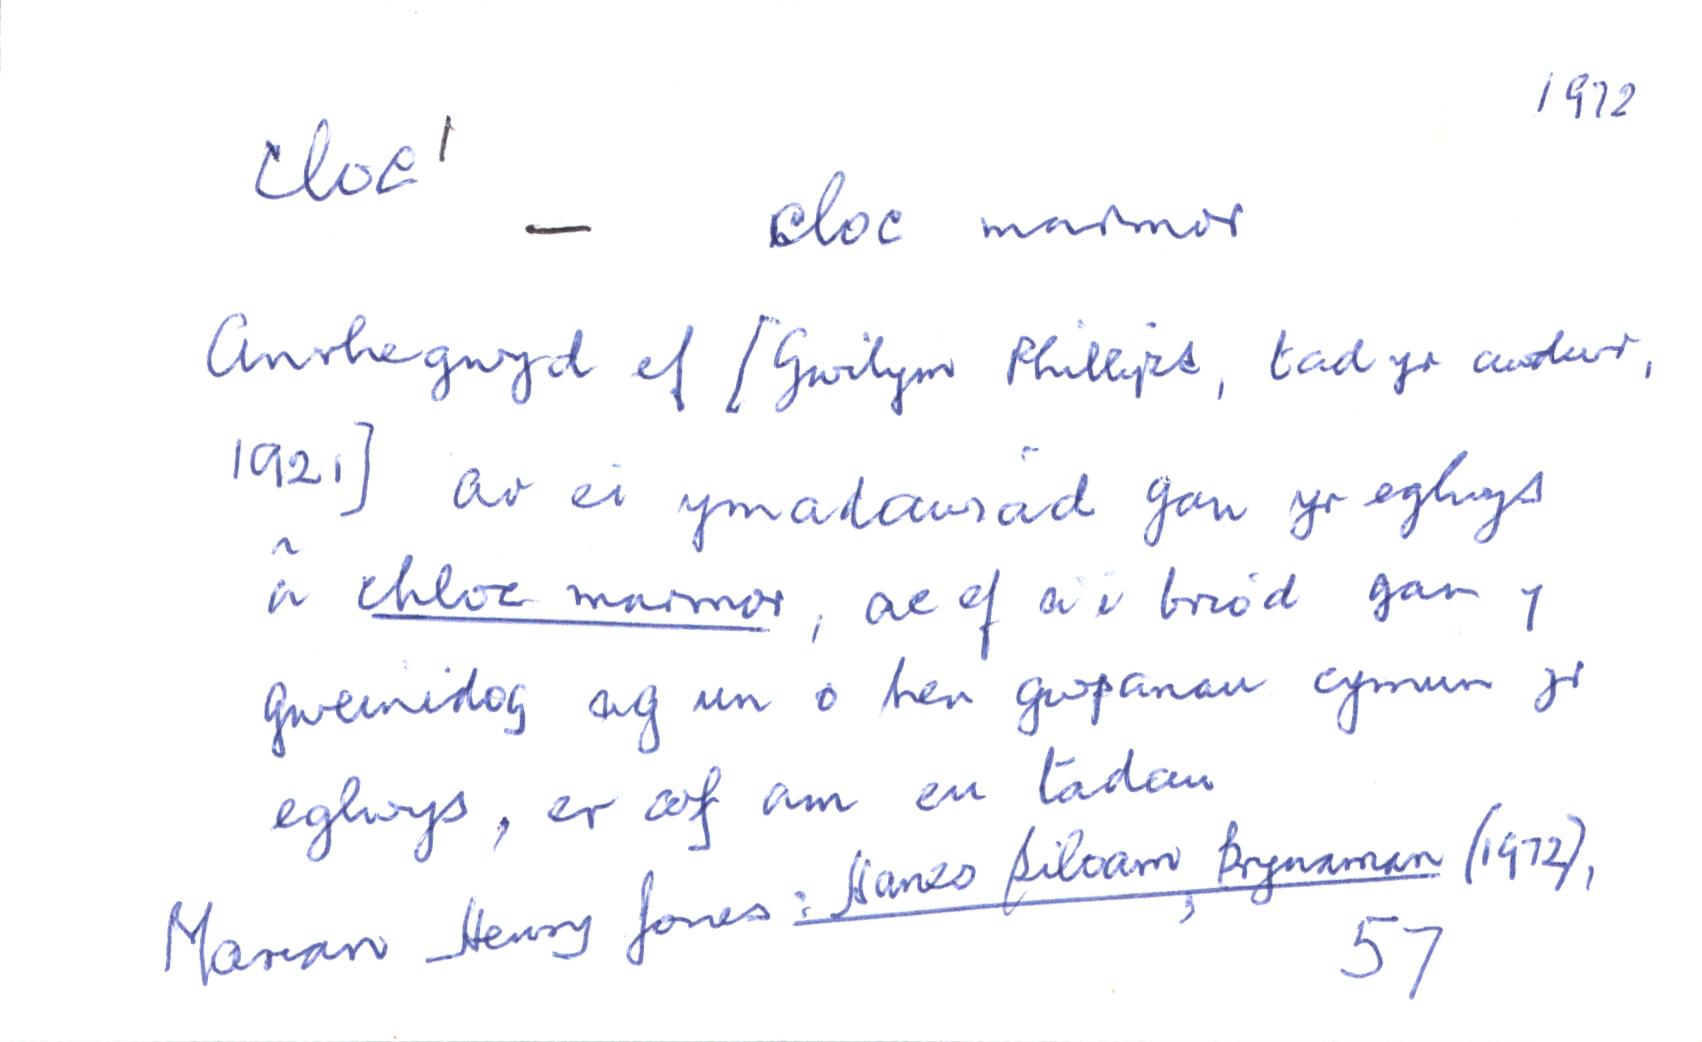 1972
cloc¹
— cloc marmor
Anrhegwyd ef [Gwilym Phillips, tad yr awdur,
1921] ar ei ymadawiad gan yr eglwys
â chloc marmor, ac ef a'i briod gan y
gweinidog ag un o hen gwpanau cymun yr
eglwys, er cof am eu tadau
Marian Henry Jones: Hanes Siloam, Brynaman (1972),
57